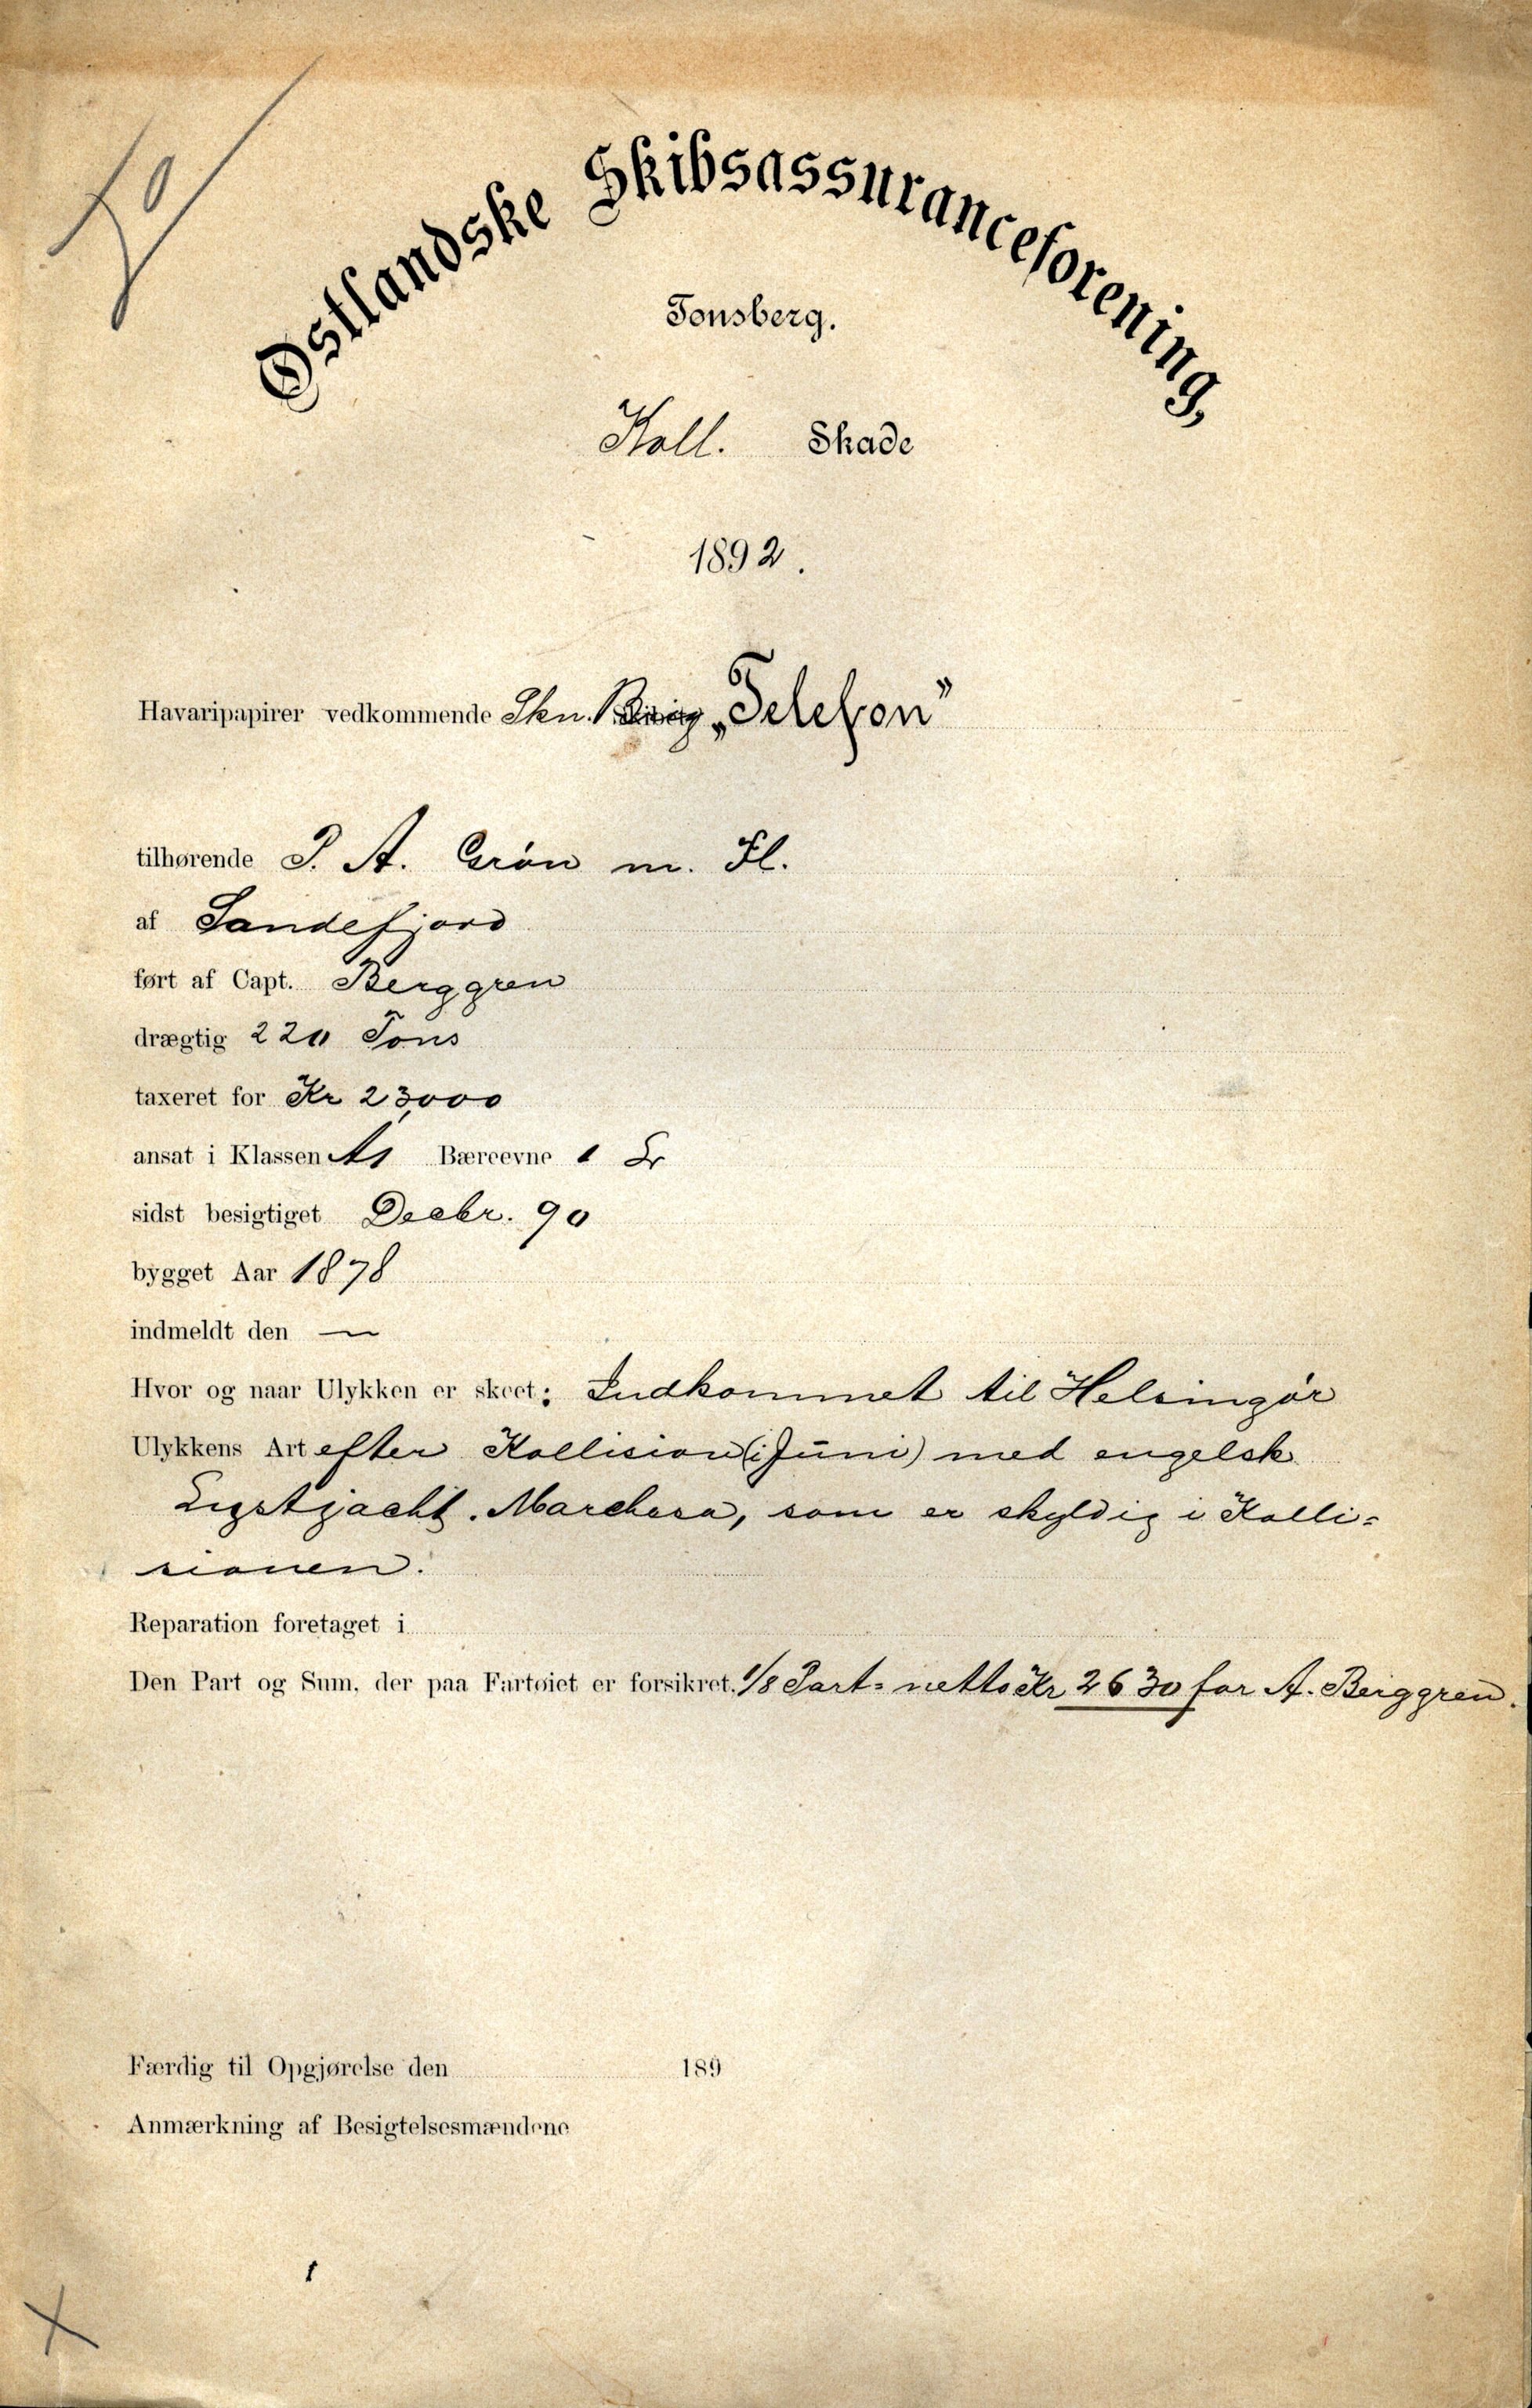 50
Østlandske Skibsassuranceforening,
Tonsberg.
Koll. Skade
1892.
Havaripapirer vedkommende Skn. Brig „Telefon”
tilhørende P. A. Grøn m. Fl.
af Sandefjord
ført af Capt. Berggren
drægtig 220 Tons
taxeret for Kr 23,000
ansat i Klassen A1 Bæreevne 1 Er
sidst besigtiget Decbr. 90
bygget Aar 1878
indmeldt den —
Hvor og naar Ulykken er skeet: Indkommet til Helsingør
Ulykkens Art efter Kollision (i Juni) med engelsk
Lystjacht. Marchesa, som er skyldig i Kolli=
sionen.
Reparation foretaget i
Den Part og Sum, der paa Fartøiet er forsikret. 1/8 Part = netto Kr 2630 for A. Berggren.
Færdig til Opgjørelse den 189
Anmærkning af Besigtelsesmændene